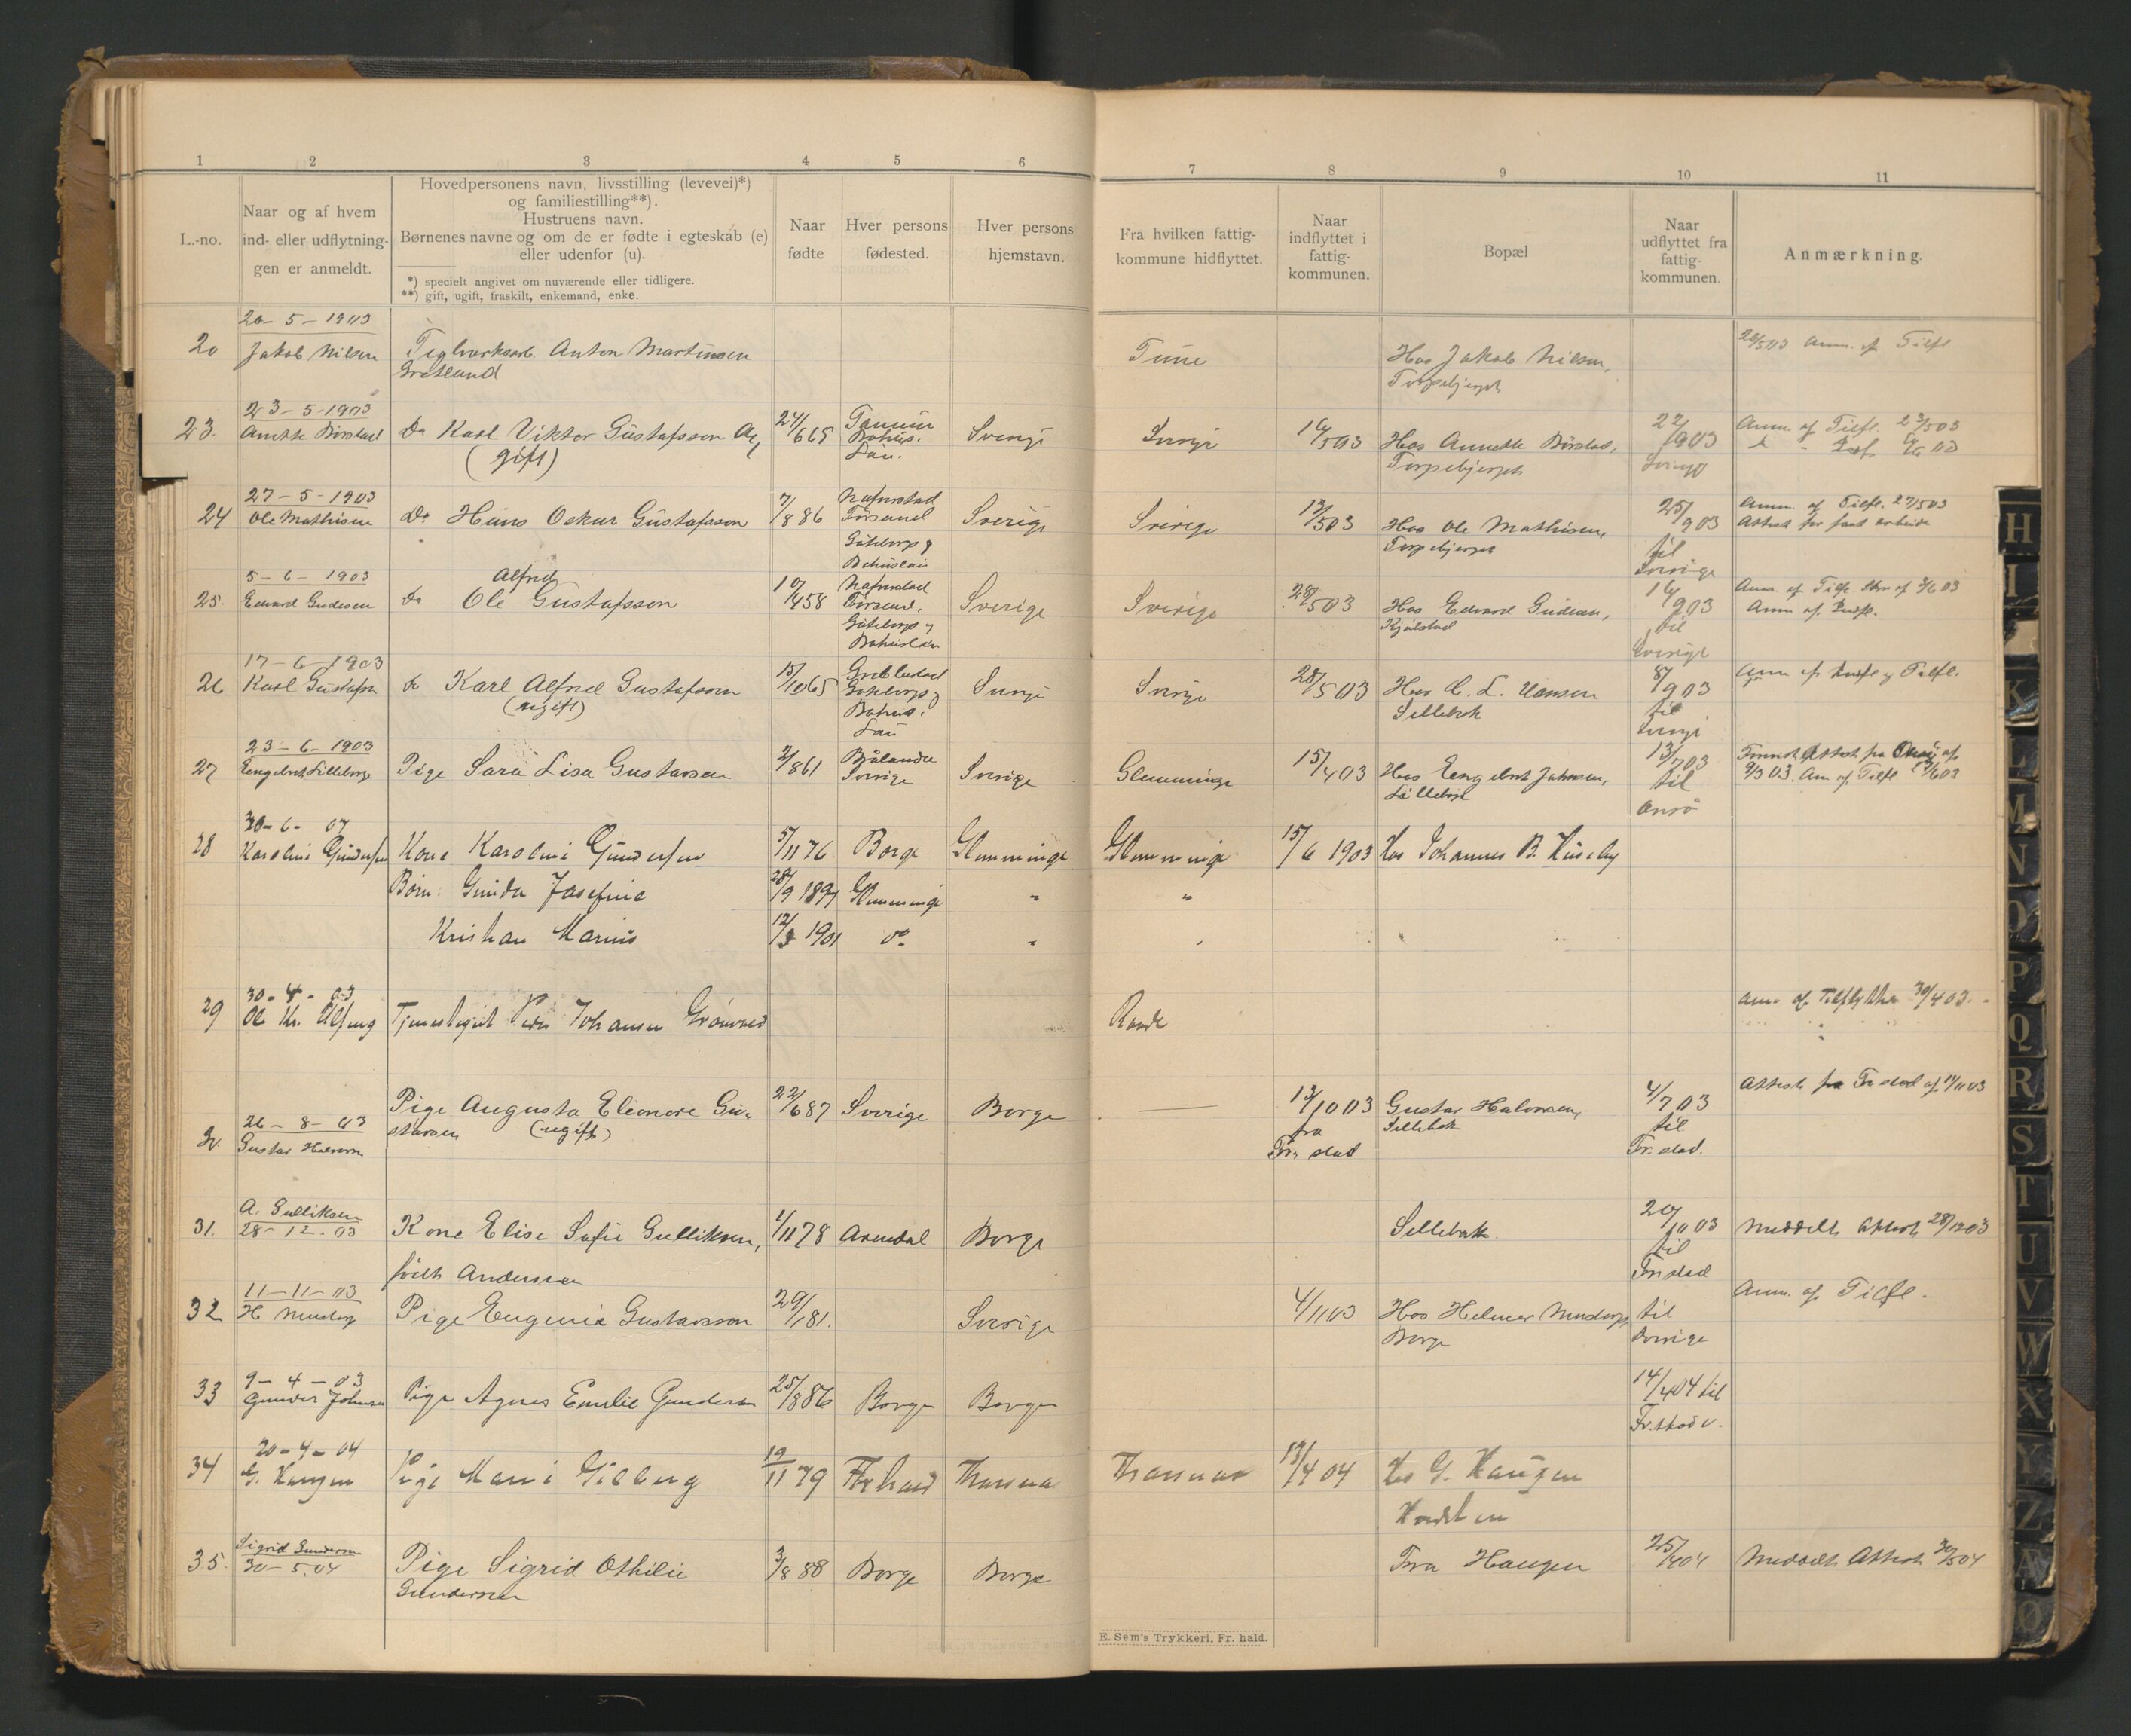 1 2 3 4 5 6 7 8 9 10 11
L.-no.
Naar og af hvem
ind- eller udflytnin-
gen er anmeldt.
Hovedpersonens navn, livsstilling (levevei)*)
og familiestilling**).
Hustruens navn.
Børnenes navne og om de er fødte i egteskab (e)
eller udenfor (u).
*) specielt angivet om nuværende eller tidligere.
**) gift, ugift, fraskilt, enkemand, enke.
Naar
fødte
Hver persons
fødested.
Hver persons
hjemstavn.
Fra hvilken fattig-
kommune hidflyttet.
Naar
indflyttet i
fattig-
kommunen.
Bopæl
Naar
udflyttet fra
fattig-
kommunen.
Anmærkning.
20-5-1903
20 Jakob Nilsen Teglverksarb. Anton Martinsen Tune Hos Jakob Nilsen, 20/5 03 Anm. af Tilfl.
Torpebjerget
23-5-1903
23. Anette Børstad Do Karl Viktor Gustafsson 24/6 65 Tanum Sverige Sverige 16/5 03 Hos Annette Børstad, 22/9 03 Anm. af Tilfl. 23/5 03
(gift) Bohus. Län. Torpebjerget Sverige
27-5-1903
24 Ole Mathisen Do Hans Oskar Gustafsson 7/8 86 Sverige Sverige 12/5 03 Hos Ole Mathisen, 25/9 03 Anm. af Tilfl. 27/5 03
Göteborgs og Torpebjerget til Attest for fast arbeide
Bohuslän Sverige
5-6-1903 Alfred
25. Edvard Gudesen Do Ole Gustafsson 10/4 58 Sverige Sverige 28/5 03 Hos Edvard Gudesen, 16/9 03
Göteborgs og Kjølstad til Anm. af Indfl.
Bohuslän Sverige
17-6-1903
26 Karl Gustafsn do Karl Alfred Gustafsson 15/10 65 Grebbestad Sverige Sverige 28/5 03 Hos C. L. Hansen 8/9 03 Anm. af Indfl og Tilfl.
(ugift) Göteborgs og Sellebak til
Bohus. Län Sverige
23-6-1903
27 Engebret Lilleborge Pige Sara Lisa Gustavsen 2/8 61 Sverige Sverige Glemminge 15/4 03 Hos Engebret Johnsen, 13/7 03
Lilleborge til
Onsø
30-6-07
28 Karoline Gundersen Kone Karoline Gundersen 5/11 76 Borge Glemminge Glemminge 15/6 1903 Hos Johannes B. Huseby
Børn: Gunda Josefine 28/9 1897 Glemminge " "
Kristian Marius 12/3 1901 do "
30-4-03
29 Ole Kr. Ulfeng Johansen Grønned Raade Anm. af Tilflytter 30/4 03.
Pige Augusta Eleonore Gu- 22/6 87 Sverige Borge 13/10 03 Gustav Halvorsen, 4/7 03 Attest fra Fr.stad af 11/11 03
26-8-03 stavsen (ugift) fra Sellebak til
30 Gustav Halvorsn Fr. stad Fr. stad.
A. Gulliksen
31. 28-12.03 Kone Elise Sofie Gulliksen, 1/11 78 Arendal Borge Sellebak 20/10 03 Meddelt Attest 28/12 03
født Andersen til
Fr.stad
11-11-03
32 H Mendorp Pige Eugenia Gustavsson 29/1 81. Sverige 4/11 03 Hos Helmer til Anm. af Tilfl.
Borge Sverige
9-4-03
33 Gunder Johnsen Pige Agnes Emilie Gundersen 25/8 86 Borge Borge 14/4 04 til
Fr.stad v.
20-4-04
34 G. Haugen Pige Marie Gilberg 19/11 79 Fr hald 13/4 04 Hos G. Haugen
Sigrid Gundersen
35. 30-5.04 Pige Sigrid Othilie 3/8 88 Borge Borge Fra Haugen 25/4 04 Meddelt Attest 30/5 04
Gundersen
E. Sem's Trykkeri, Fr. hald.
H
I
K
L
M
N
O
P
Q
R
S
T
U
V
W
X
Y
Z